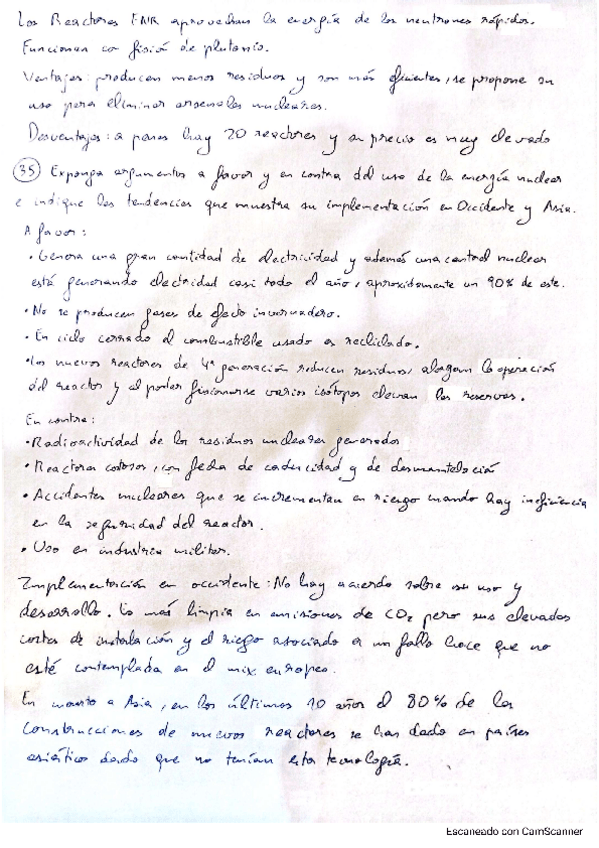 Los Reactores FNR aprovechan la energía de los neutrones rápidos.
Funcionan con fisión de plutonio.
Ventajas: producen menos residuos y son más eficientes, se propone su
uso para eliminar arsenales nucleares.
Desventajas: a penas hay 20 reactores y su precio es muy elevado
35 Exponga argumentos a favor y en contra del uso de la energía nuclear
e indique las tendencias que muestra su implementación en Occidente y Asia.
A favor:
· Genera una gran cantidad de electricidad y además una central nuclear
está generando electricidad casi todo el año, aproximadamente un 90% de este.
· No se producen gases de efecto invernadero.
· En ciclo cerrado el combustible usado es reciclado.
· Los nuevos reactores de 4ª generación reducen residuos, alargan la operación
del reactor y al poder fisionarse varios isótopos elevan las reservas.
En contra:
· Radioactividad de los residuos nucleares generados
· Reactores costosos, con fecha de caducidad y de desmantelación
· Accidentes nucleares que se incrementan en riesgo cuando hay ineficiencia
en la seguridad del reactor.
· Uso en industria militar.
Implementación en occidente: No hay acuerdo sobre su uso y
desarrollo. Es más limpia en emisiones de CO₂ pero sus elevados
costes de instalación y el riesgo asociado a un fallo hace que no
esté contemplada en el mix europeo.
En cuanto a Asia, en los últimos 10 años el 80% de las
construcciones de nuevos reactores se han dado en países
asiáticos dado que no tenían esta tecnología.
Escaneado con CamScanner